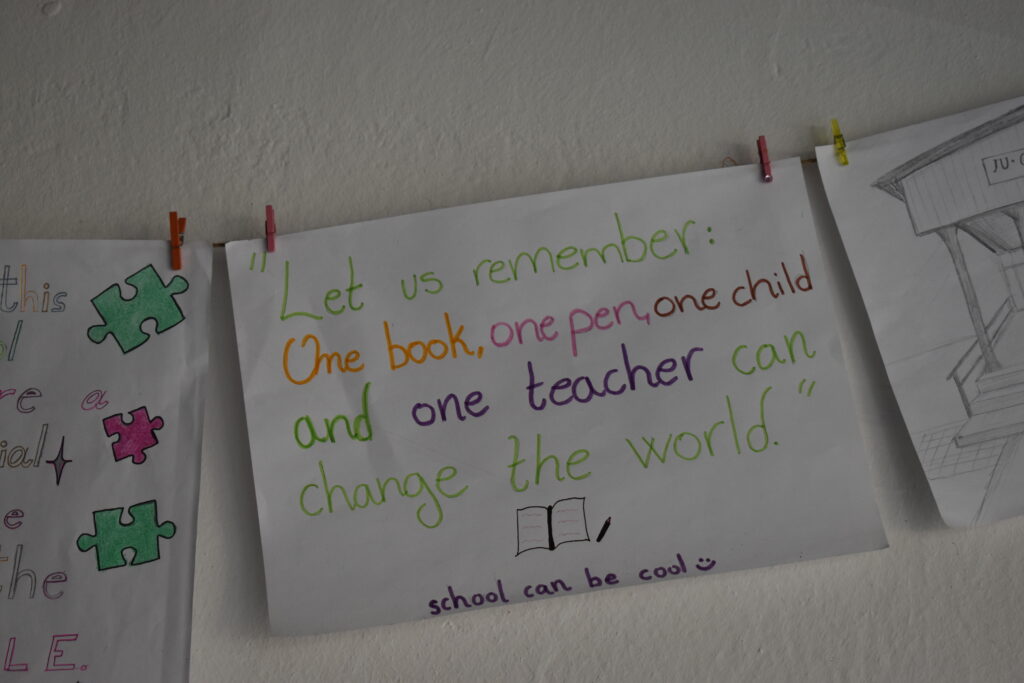 this
re a
ial
e
the
LE.
"Let us remember:
One book, one pen, one child
and one teacher can
change the world."
school can be cool